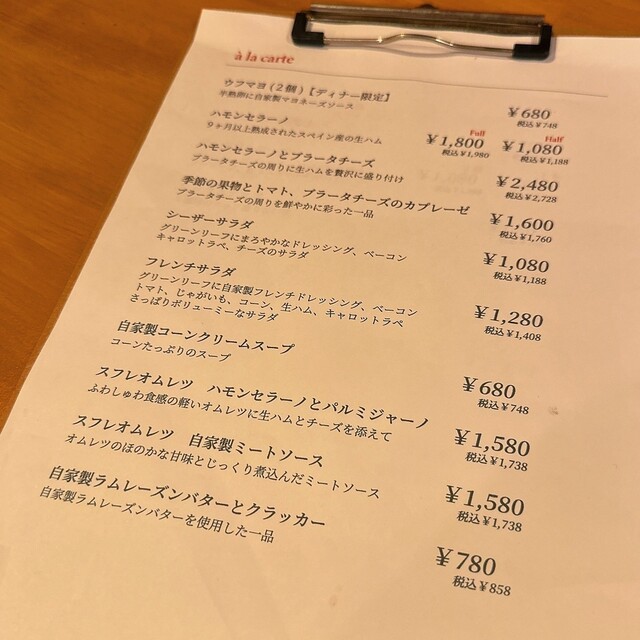 à la carte
ウフマヨ(2個)【ディナー限定】
半熟卵に自家製マヨネーズソース
¥680
税込¥748
ハモンセラーノ
9ヶ月以上熟成されたスペイン産の生ハム
Full
¥1,800
税込¥1,980
Half
¥1,080
税込¥1,188
ハモンセラーノとブラータチーズ
ブラータチーズの周りに生ハムを贅沢に盛り付け
¥2,480
税込¥2,728
季節の果物とトマト、ブラータチーズのカプレーゼ
ブラータチーズの周りを鮮やかに彩った一品
¥1,600
税込¥1,760
シーザーサラダ
グリーンリーフにまろやかなドレッシング、ベーコン
キャロットラペ、チーズのサラダ
¥1,080
税込¥1,188
フレンチサラダ
グリーンリーフに自家製フレンチドレッシング、ベーコン
トマト、じゃがいも、コーン、生ハム、キャロットラペ
さっぱりボリューミーなサラダ
¥1,280
税込¥1,408
自家製コーンクリームスープ
コーンたっぷりのスープ
¥680
税込¥748
スフレオムレツ ハモンセラーノとパルミジャーノ
ふわしゅわ食感の軽いオムレツに生ハムとチーズを添えて
¥1,580
税込¥1,738
スフレオムレツ 自家製ミートソース
オムレツのほのかな甘味とじっくり煮込んだミートソース
¥1,580
税込¥1,738
自家製ラムレーズンバターとクラッカー
自家製ラムレーズンバターを使用した一品
¥780
税込¥858